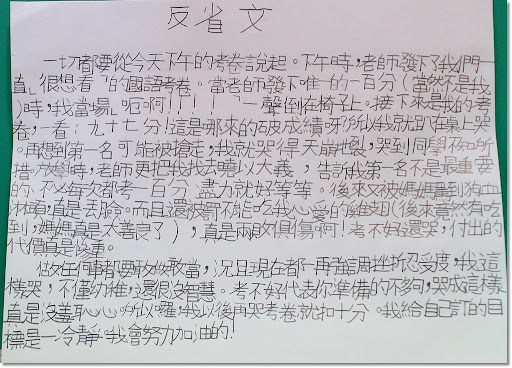 反省文
一切都要從今天下午的考卷說起。下午時,老師發下了我們一
直「很想看」的國語考卷。當老師發下唯一的一百分(當然不是我
)時,我當場「呃啊!!!」一聲倒在椅子上。接下來是我的考
卷,一看:九十七分!這是哪來的破成績呀!所以我就趴在桌上哭
。再想到第一名可能被搶走,我就哭得天崩地裂,哭到同學不知所
措。放學時,老師更把我找去曉以大義,告訴我第一名不是最重要
的,不必每次都考一百分,盡力就好等等。後來又被媽媽罵到狗血
淋頭,真是丟臉。而且還被罰不能吃我心愛的雞翅(後來竟然有吃
到,媽媽真是太善良了),真是兩敗俱傷啊!考不好還哭,付出的
代價真是慘重。
做任何事都要敢做敢當,況且現在都一再強調挫折忍受度,我這
樣哭,不僅幼稚,還很沒智慧。考不好代表你準備的不夠,哭成這樣
真是沒羞恥心。所以囉!我以後再哭考卷就扣十分。我給自己訂的目
標是—冷靜。我會努力加油的!